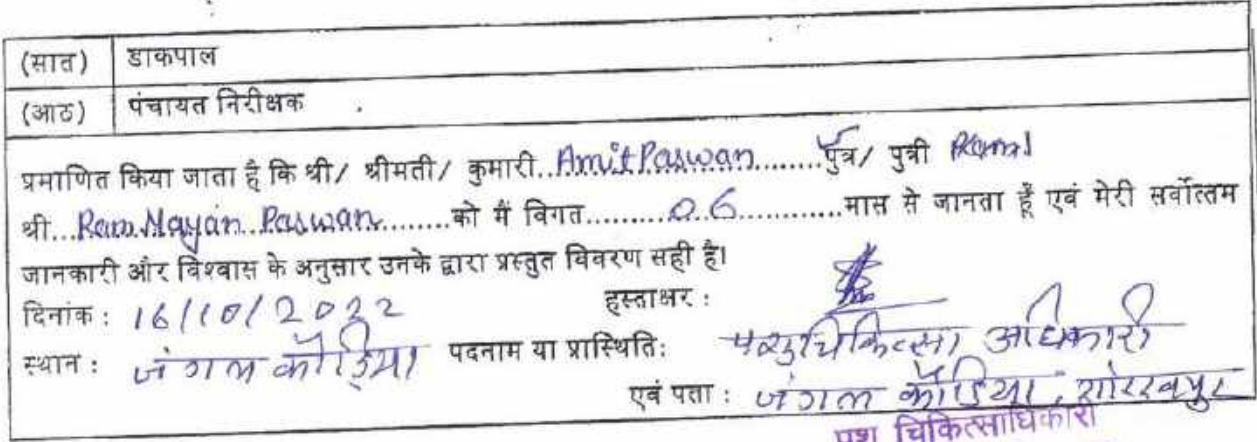 (सात) डाकपाल
(आठ) पंचायत निरीक्षक
प्रमाणित किया जाता है कि श्री/ श्रीमती/ कुमारी..Amit Paswan........पुत्र/ पुत्री
श्री...Ram Nayan Paswan.........को मैं विगत.........06............मास से जानता हूँ एवं मेरी सर्वोत्तम
जानकारी और विश्वास के अनुसार उनके द्वारा प्रस्तुत विवरण सही है।
दिनांक : 16/10/2022 हस्ताक्षर :
स्थान : जंगल कौड़िया पदनाम या प्रास्थिति: पशुचिकित्सा अधिकारी
एवं पता : जंगल कौड़िया, गोरखपुर
पशु चिकित्साधिकारी